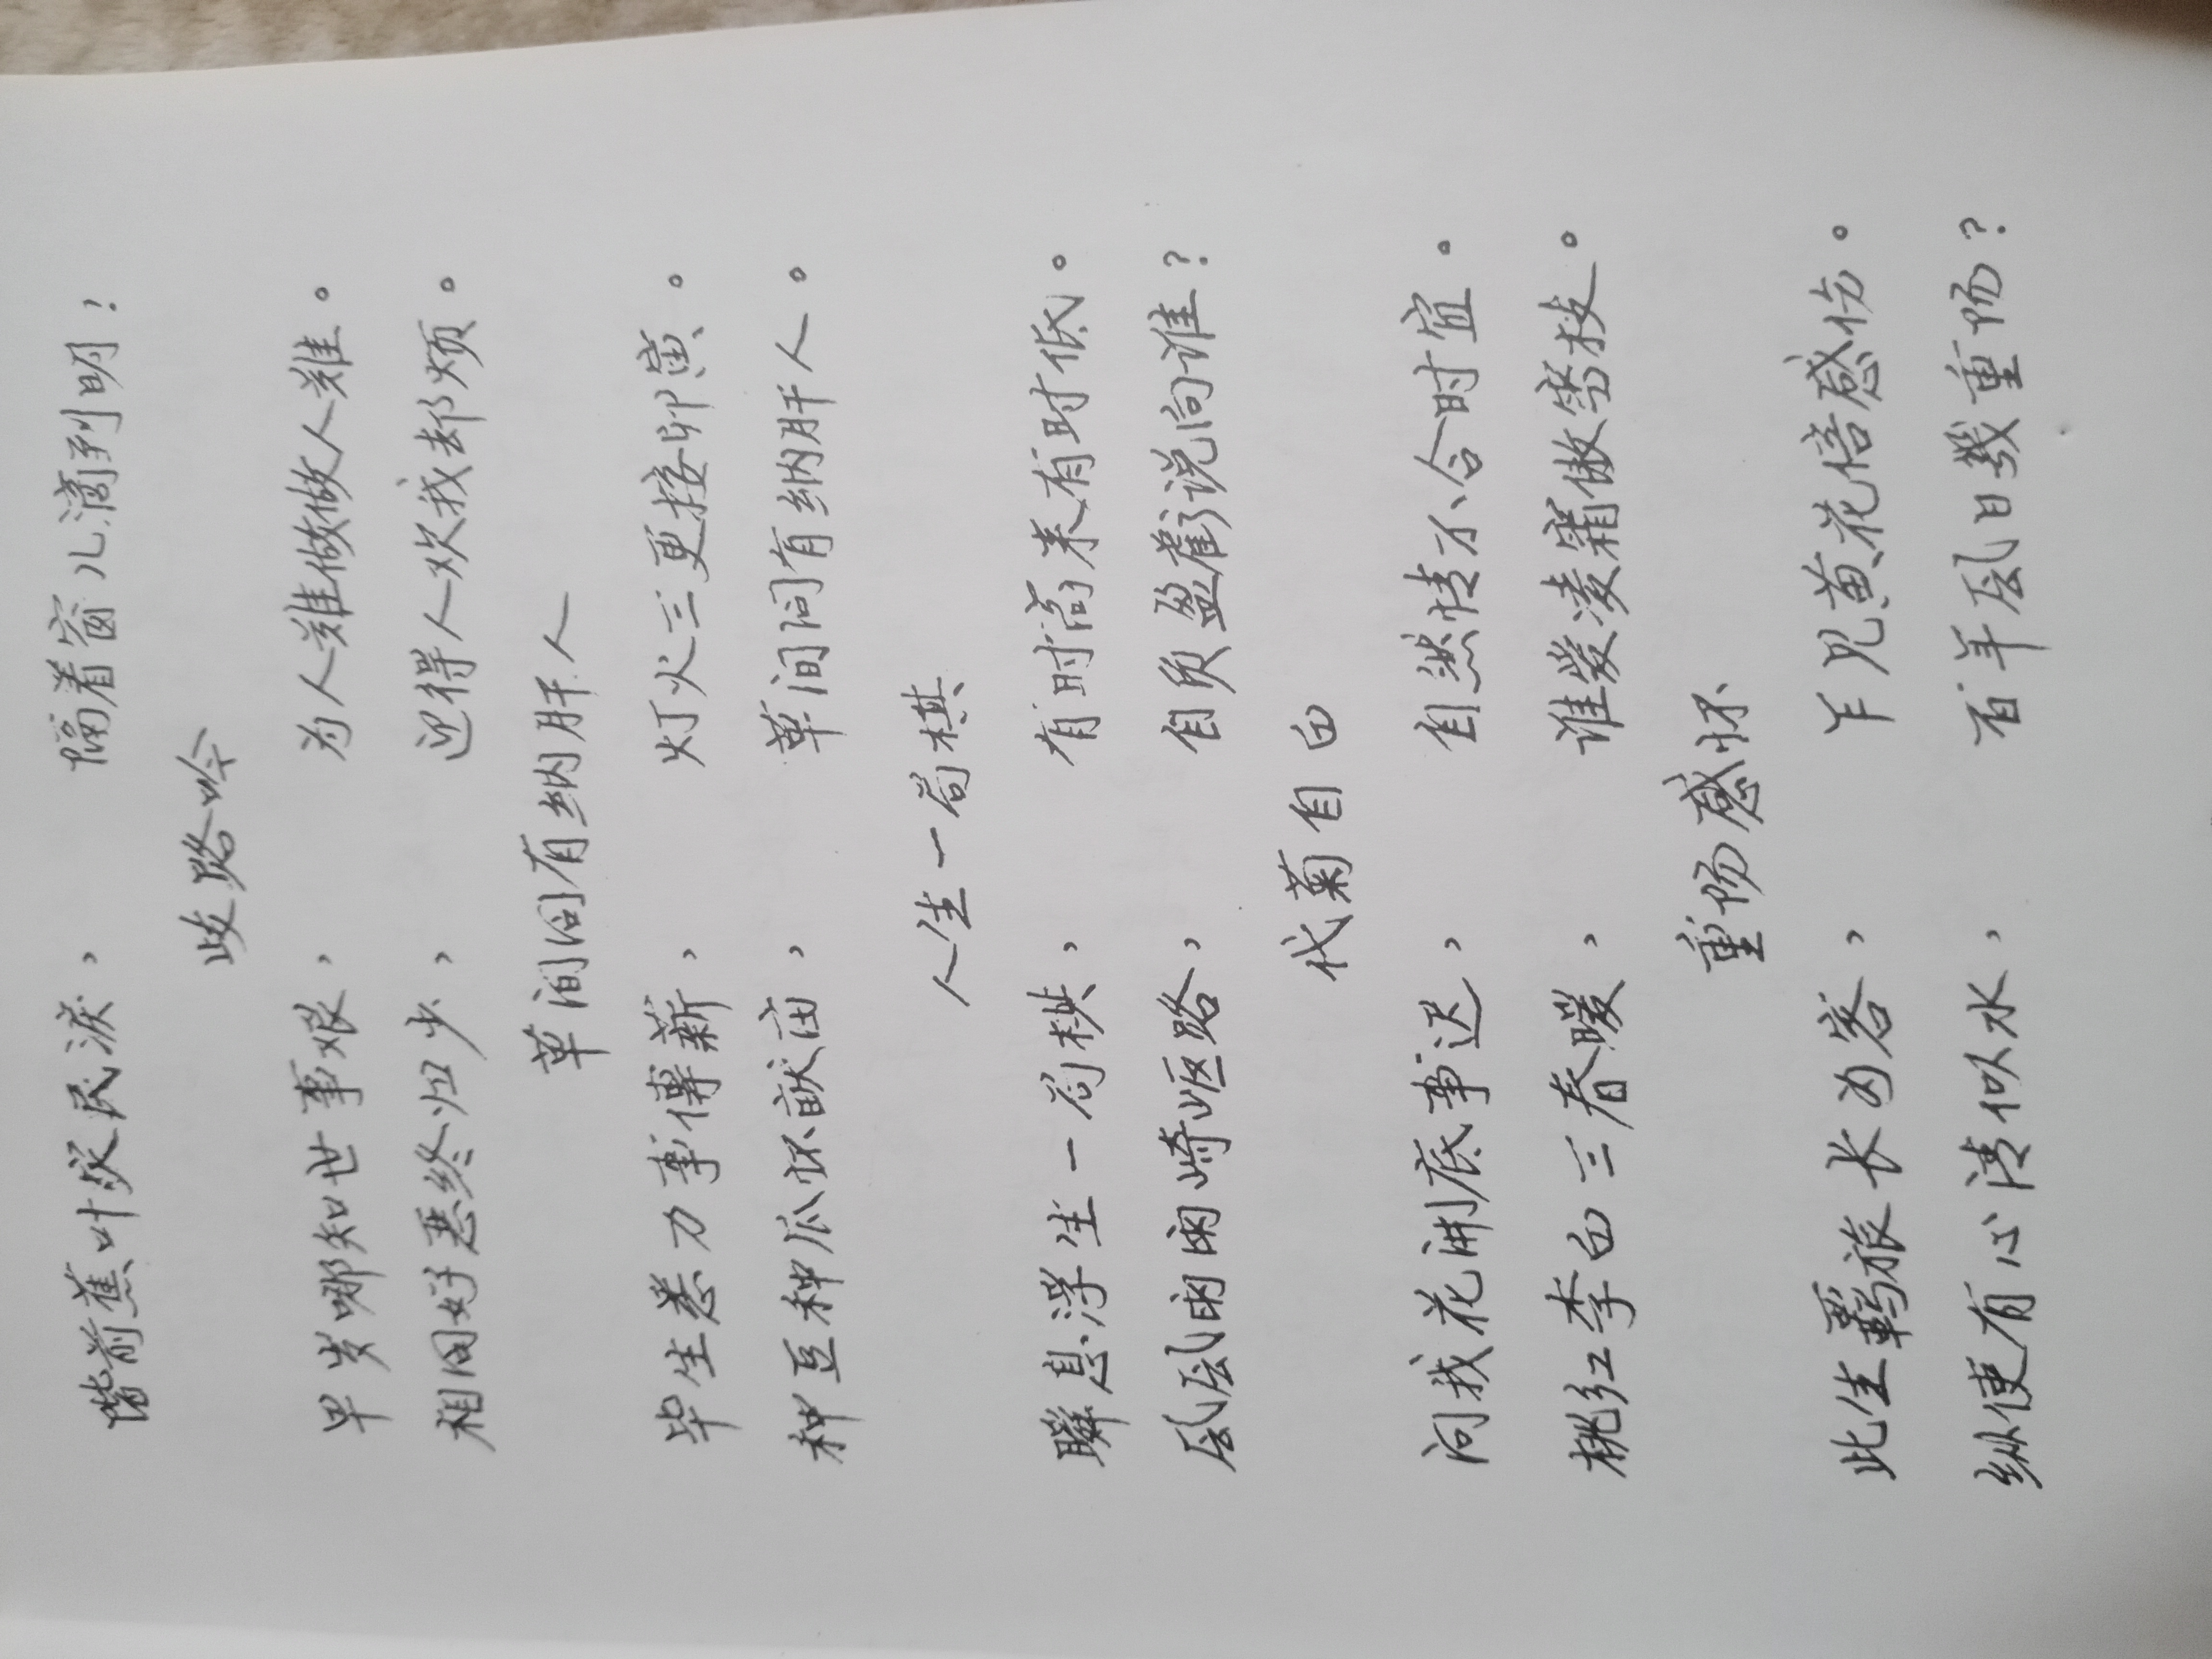 阶前蕉叶灾民淚， 隔着窗儿滴到明！
歧路吟
早岁哪知世事艰， 为人难做做人难。
相同好恶终归少， 迎得人欢我却烦。
草间问有纳肝人
毕生悉力事傳薪， 灯火三更接卯寅。
种豆种瓜怀畎亩， 草间问有纳肝人。
人生一局棋
瞬息浮生一局棋， 有时高来有时低。
风风雨雨崎岖路， 自负盈虧说向谁？
代菊自白
问我花开底事迟， 自然情不合时宜。
桃红李白三春暖， 谁爱凌霜傲骨枝。
重阳感怀
此生羁旅长为客， 乍见黄花倍感伤。
纵使有心清似水， 百年风日幾重阳？